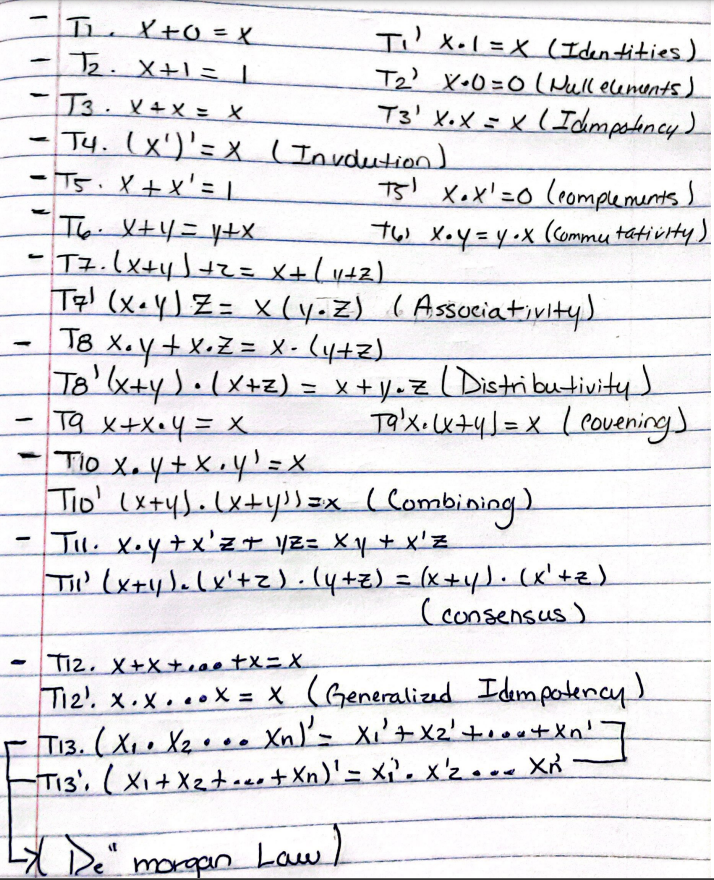 - T1. X+0 = X T1' X•1 = X (Identities)
- T2. X+1 = 1 T2' X•0=0 (Null elements)
- T3. X+X = X T3' X•X = X (Idempotency)
- T4. (X')' = X (Involution)
- T5. X + X' = 1 T5' X•X'=0 (complements)
- T6. X+y = y+X T6' X•y = y•X (Commutativity)
- T7. (X+y)+z = X+(y+z)
T7' (X•y) Z = X (y•Z) (Associativity)
- T8 X•y + X•Z = X•(y+z)
T8' (X+y)•(X+z) = X+y•z (Distributivity)
- T9 X+X•y = X T9' X•(X+y) = X (covening)
- T10 X•y + X•y' = X
T10' (X+y)•(X+y')=X (Combining)
- T11. X•y + X'z + yz = Xy + X'z
T11' (X+y)•(X'+z)•(y+z) = (X+y)•(X'+z)
(consensus)
- T12. X+X+...+X=X
T12'. X•X•...X = X (Generalized Idempotency)
T13. (X1 • X2 ... Xn)' = X1' + X2' +...+ Xn'
T13'. (X1+X2+...+Xn)' = X1' • X'2 ... Xn'
( De" morgan Law)